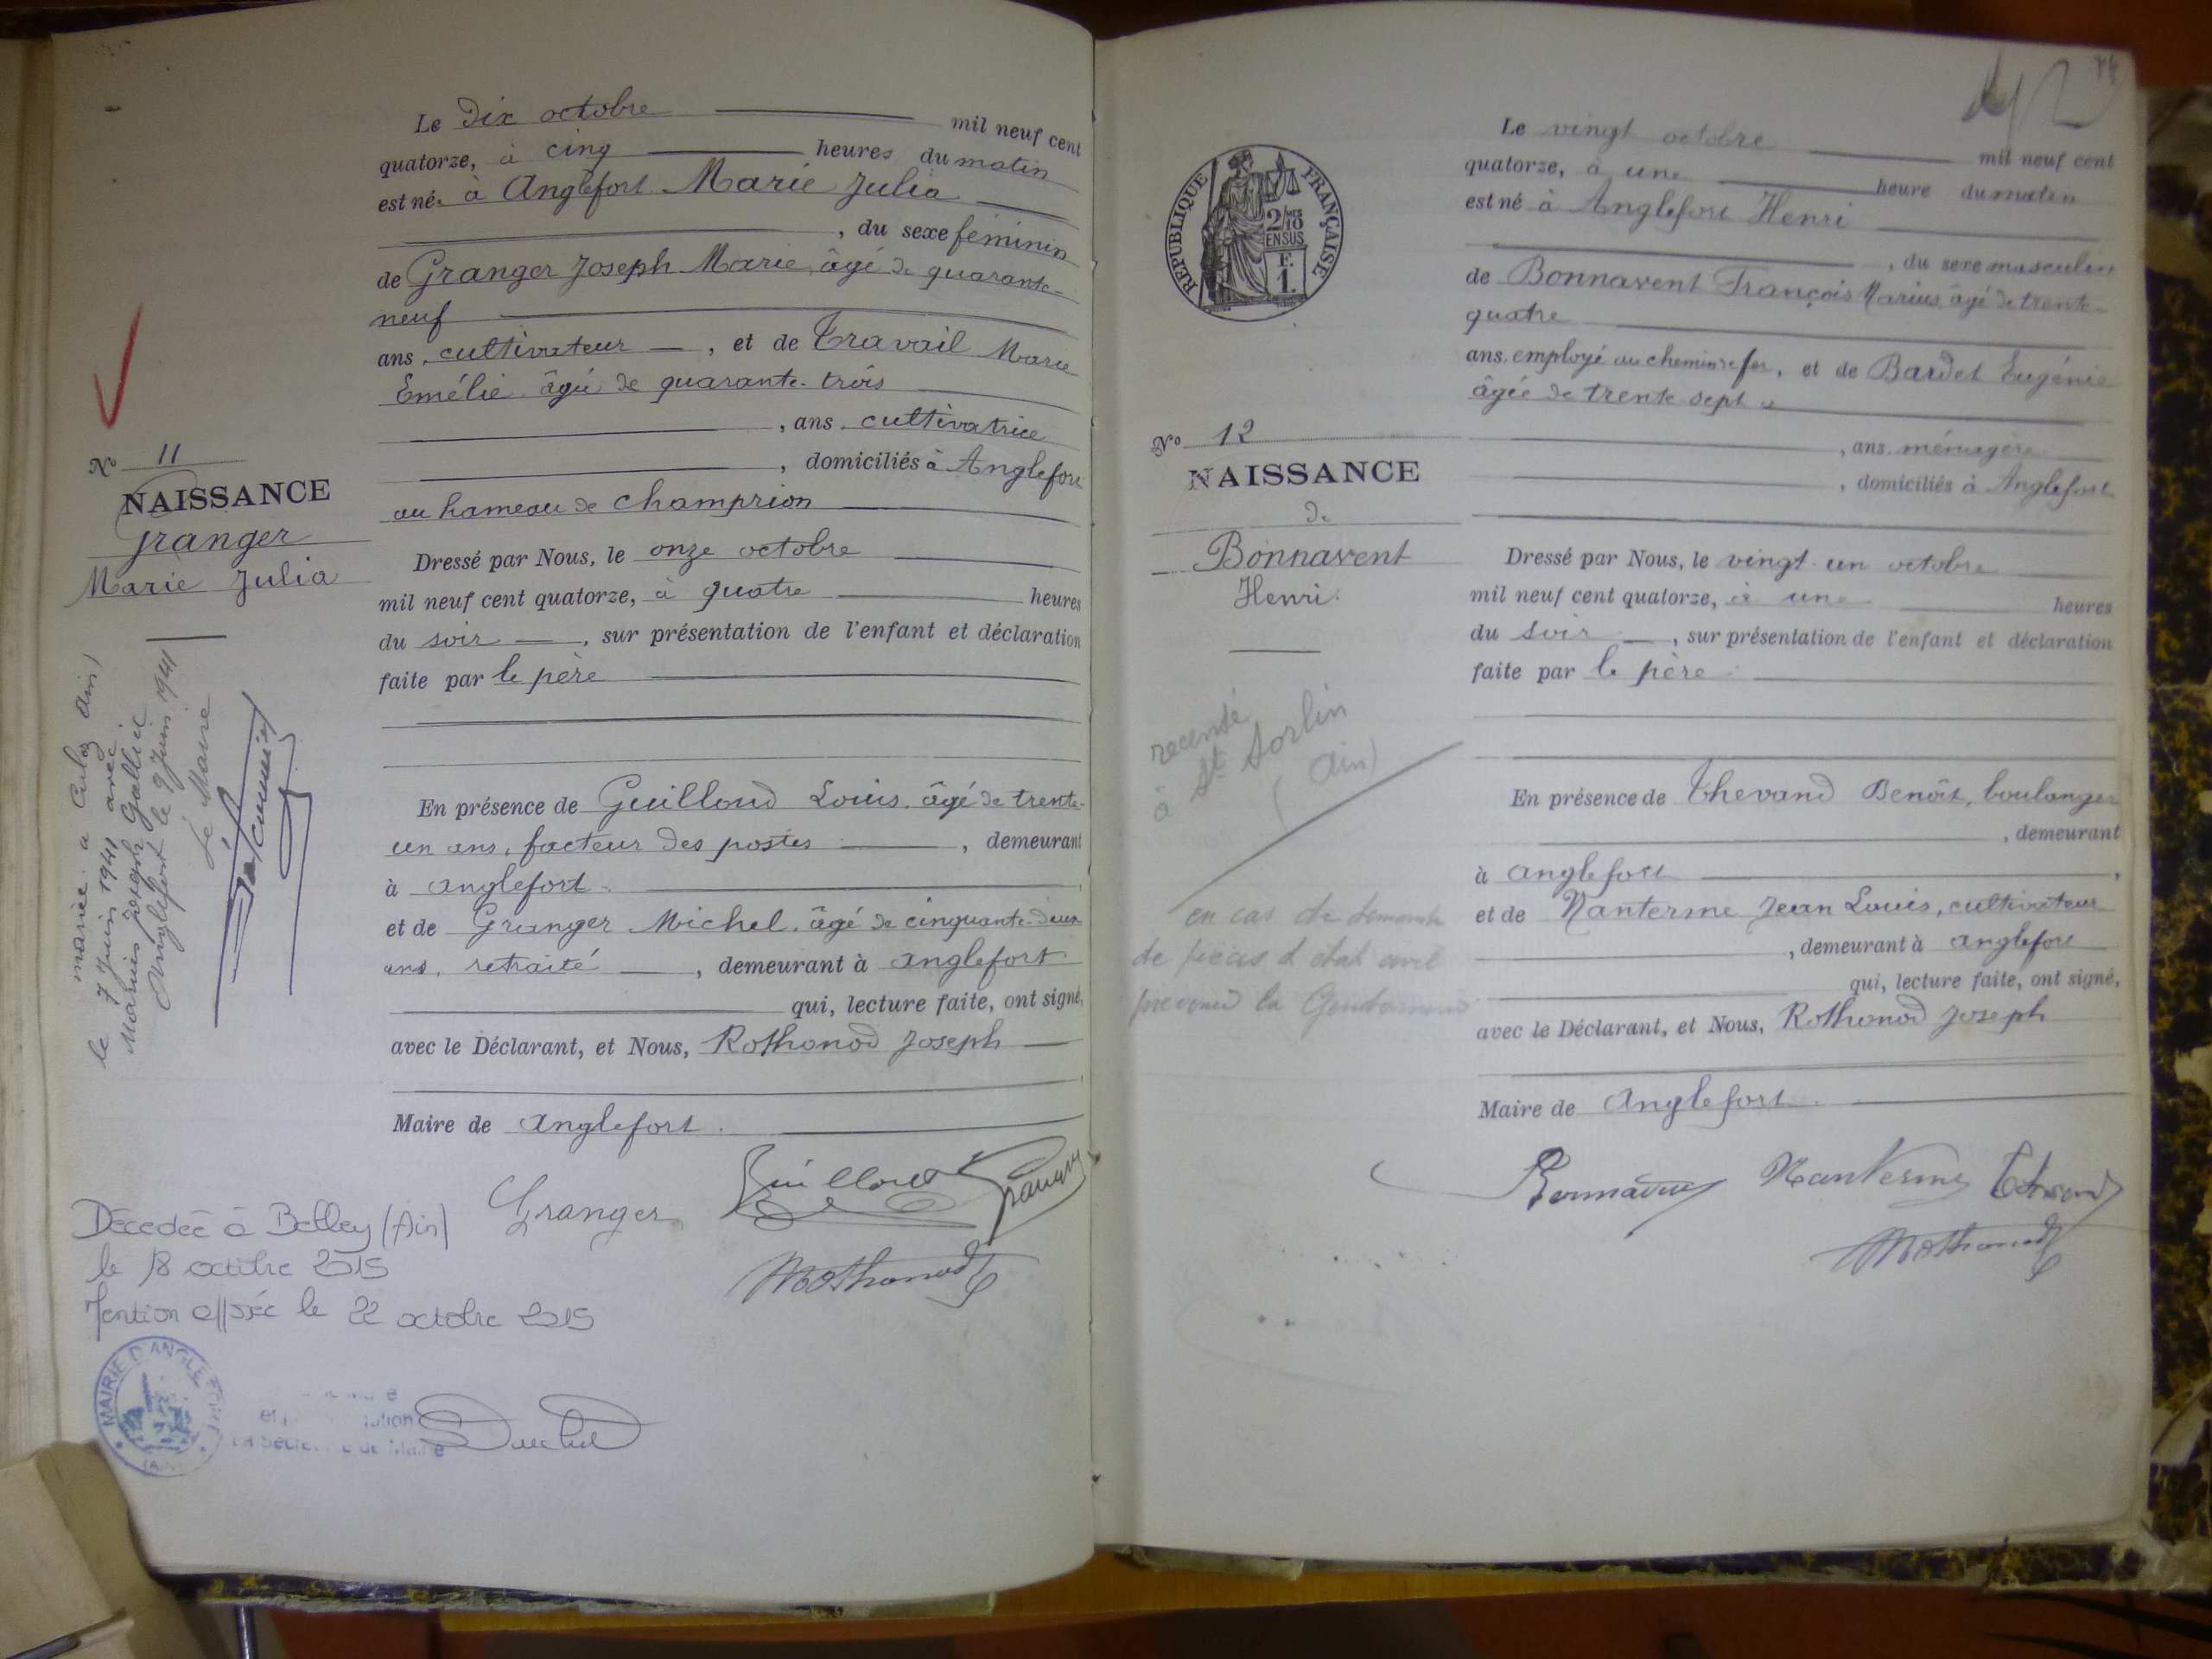 Le Dix octobre mil neuf cent
quatorze, à cinq heures du matin
est née à Anglefort Marie Julia
, du sexe féminin
de Granger Joseph Marie, âgé de quarante-
neuf
ans, cultivateur, et de Travail Marie
Emélie, âgée de quarante-trois
, ans, cultivatrice
, domiciliés à Anglefort
au hameau de Champrion
N° 11
NAISSANCE
Granger
Marie Julia
Dressé par Nous, le onze octobre
mil neuf cent quatorze, à quatre heures
du soir, sur présentation de l'enfant et déclaration
faite par le père
En présence de Guilloud Louis, âgé de trente-
un ans, facteur des postes, demeurant
à Anglefort
et de Granger Michel, âgé de cinquante-deux
ans, retraité, demeurant à Anglefort
qui, lecture faite, ont signé,
avec le Déclarant, et Nous, Rothonod Joseph
Maire de Anglefort.
mariée à Culoz (Ain)
le 7 Juin 1941 avec
Marius Joseph Gallice
Anglefort le 9 Juin 1941
Le Maire
Granger
Guilloud
Granger
Rothonod
Décédée à Belley (Ain)
le 18 octobre 2015
Mention apposée le 22 octobre 2015
MAIRIE D'ANGLEFORT
(AIN)
RÉPUBLIQUE FRANÇAISE
2/10 MES
EN SUS
F.
1.
Le vingt octobre mil neuf cent
quatorze, à une heure du matin
est né à Anglefort Henri
, du sexe masculin
de Bonnavent François Marius, âgé de trente-
quatre
ans, employé au chemin de fer, et de Bardet Eugénie
âgée de trente-sept
, ans, ménagère
, domiciliés à Anglefort
N° 12
NAISSANCE
de
Bonnavent
Henri.
Dressé par Nous, le vingt-un octobre
mil neuf cent quatorze, à une heures
du soir, sur présentation de l'enfant et déclaration
faite par le père
recensé
à St Sorlin
(Ain)
en cas de demande
de pièces d'état civil
prévenir la Gendarmerie
En présence de Thevand Benoît, boulanger
, demeurant
à Anglefort,
et de Nanterme Jean Louis, cultivateur
, demeurant à Anglefort
qui, lecture faite, ont signé,
avec le Déclarant, et Nous, Rothonod Joseph
Maire de Anglefort.
Bonnavent
Nanterme
Thevand
Rothonod